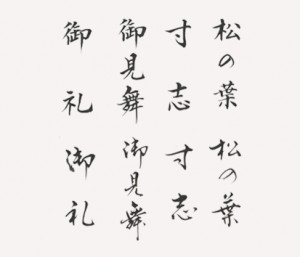 松の葉 松の葉
寸志 寸志
御見舞 御見舞
御礼 御礼